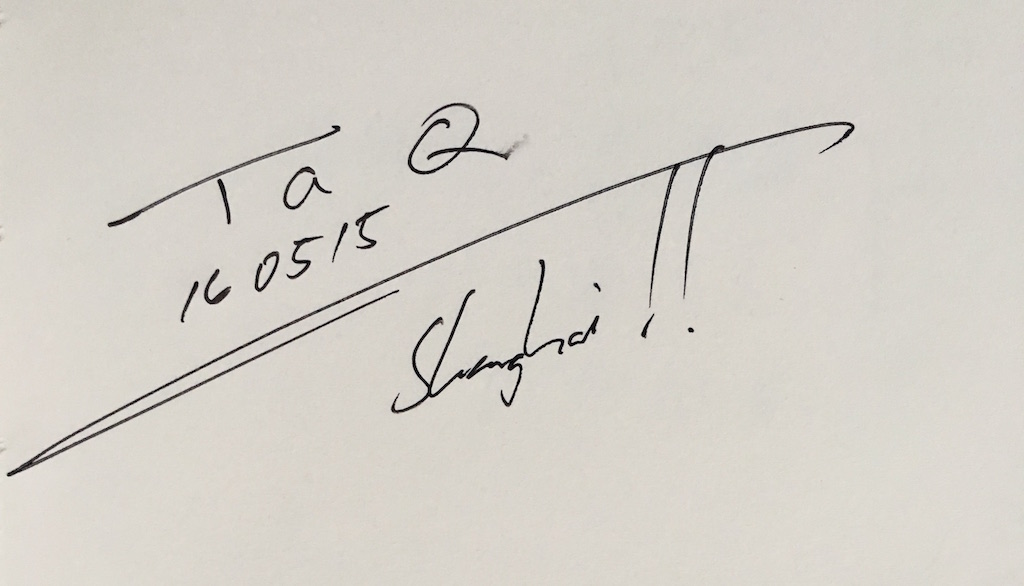 Ta Q
160515
Shanghai !!